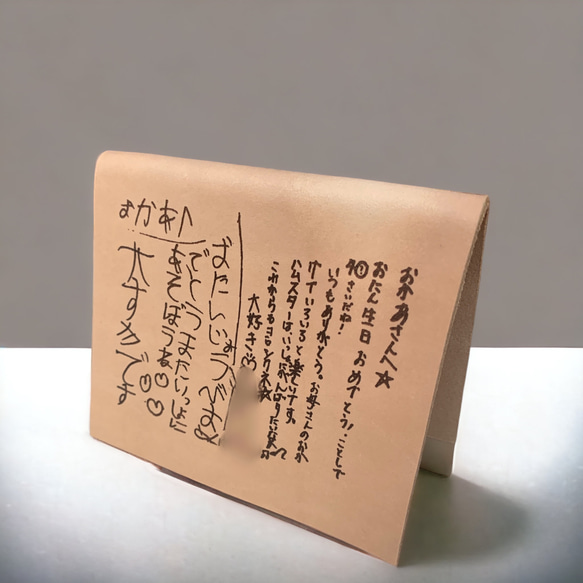 お母さんへ☆
おたん生日おめでとう!ことしで
さいだね!
いつもありがとう。お母さんのおか
げでいろいろと楽しいです。
ハムスターはいっしょにがんばりたいな
これからもヨロシクネ☆
大好き
おかあ
ばたんじょうびおめ
でとうまたいっしょに
あそぼうね♡♡
大すきです